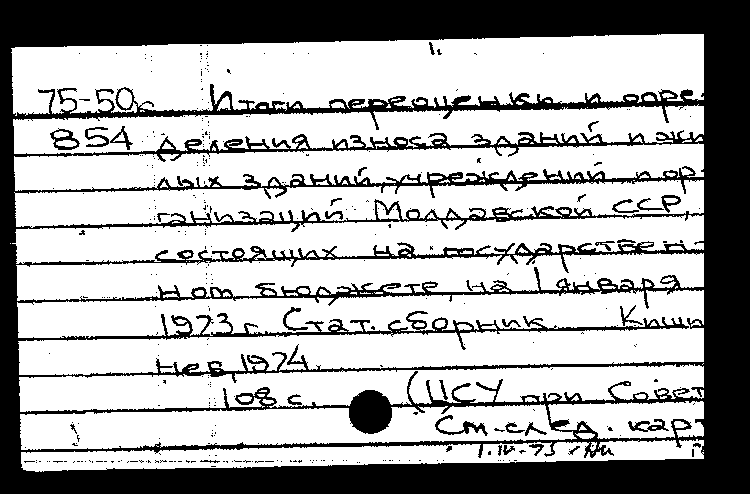 75-50к Итоги переоценки и опре-
854 деления износа зданий и жи
лых зданий, учреждений и ор-
ганизаций Молдавской ССР,
состоящих на государствен-
ном бюджете, на 1 января
1973 г. Стат. сборник. Киши
нев, 1974.
108 с. (ЦСУ при Совет
См. след. карт